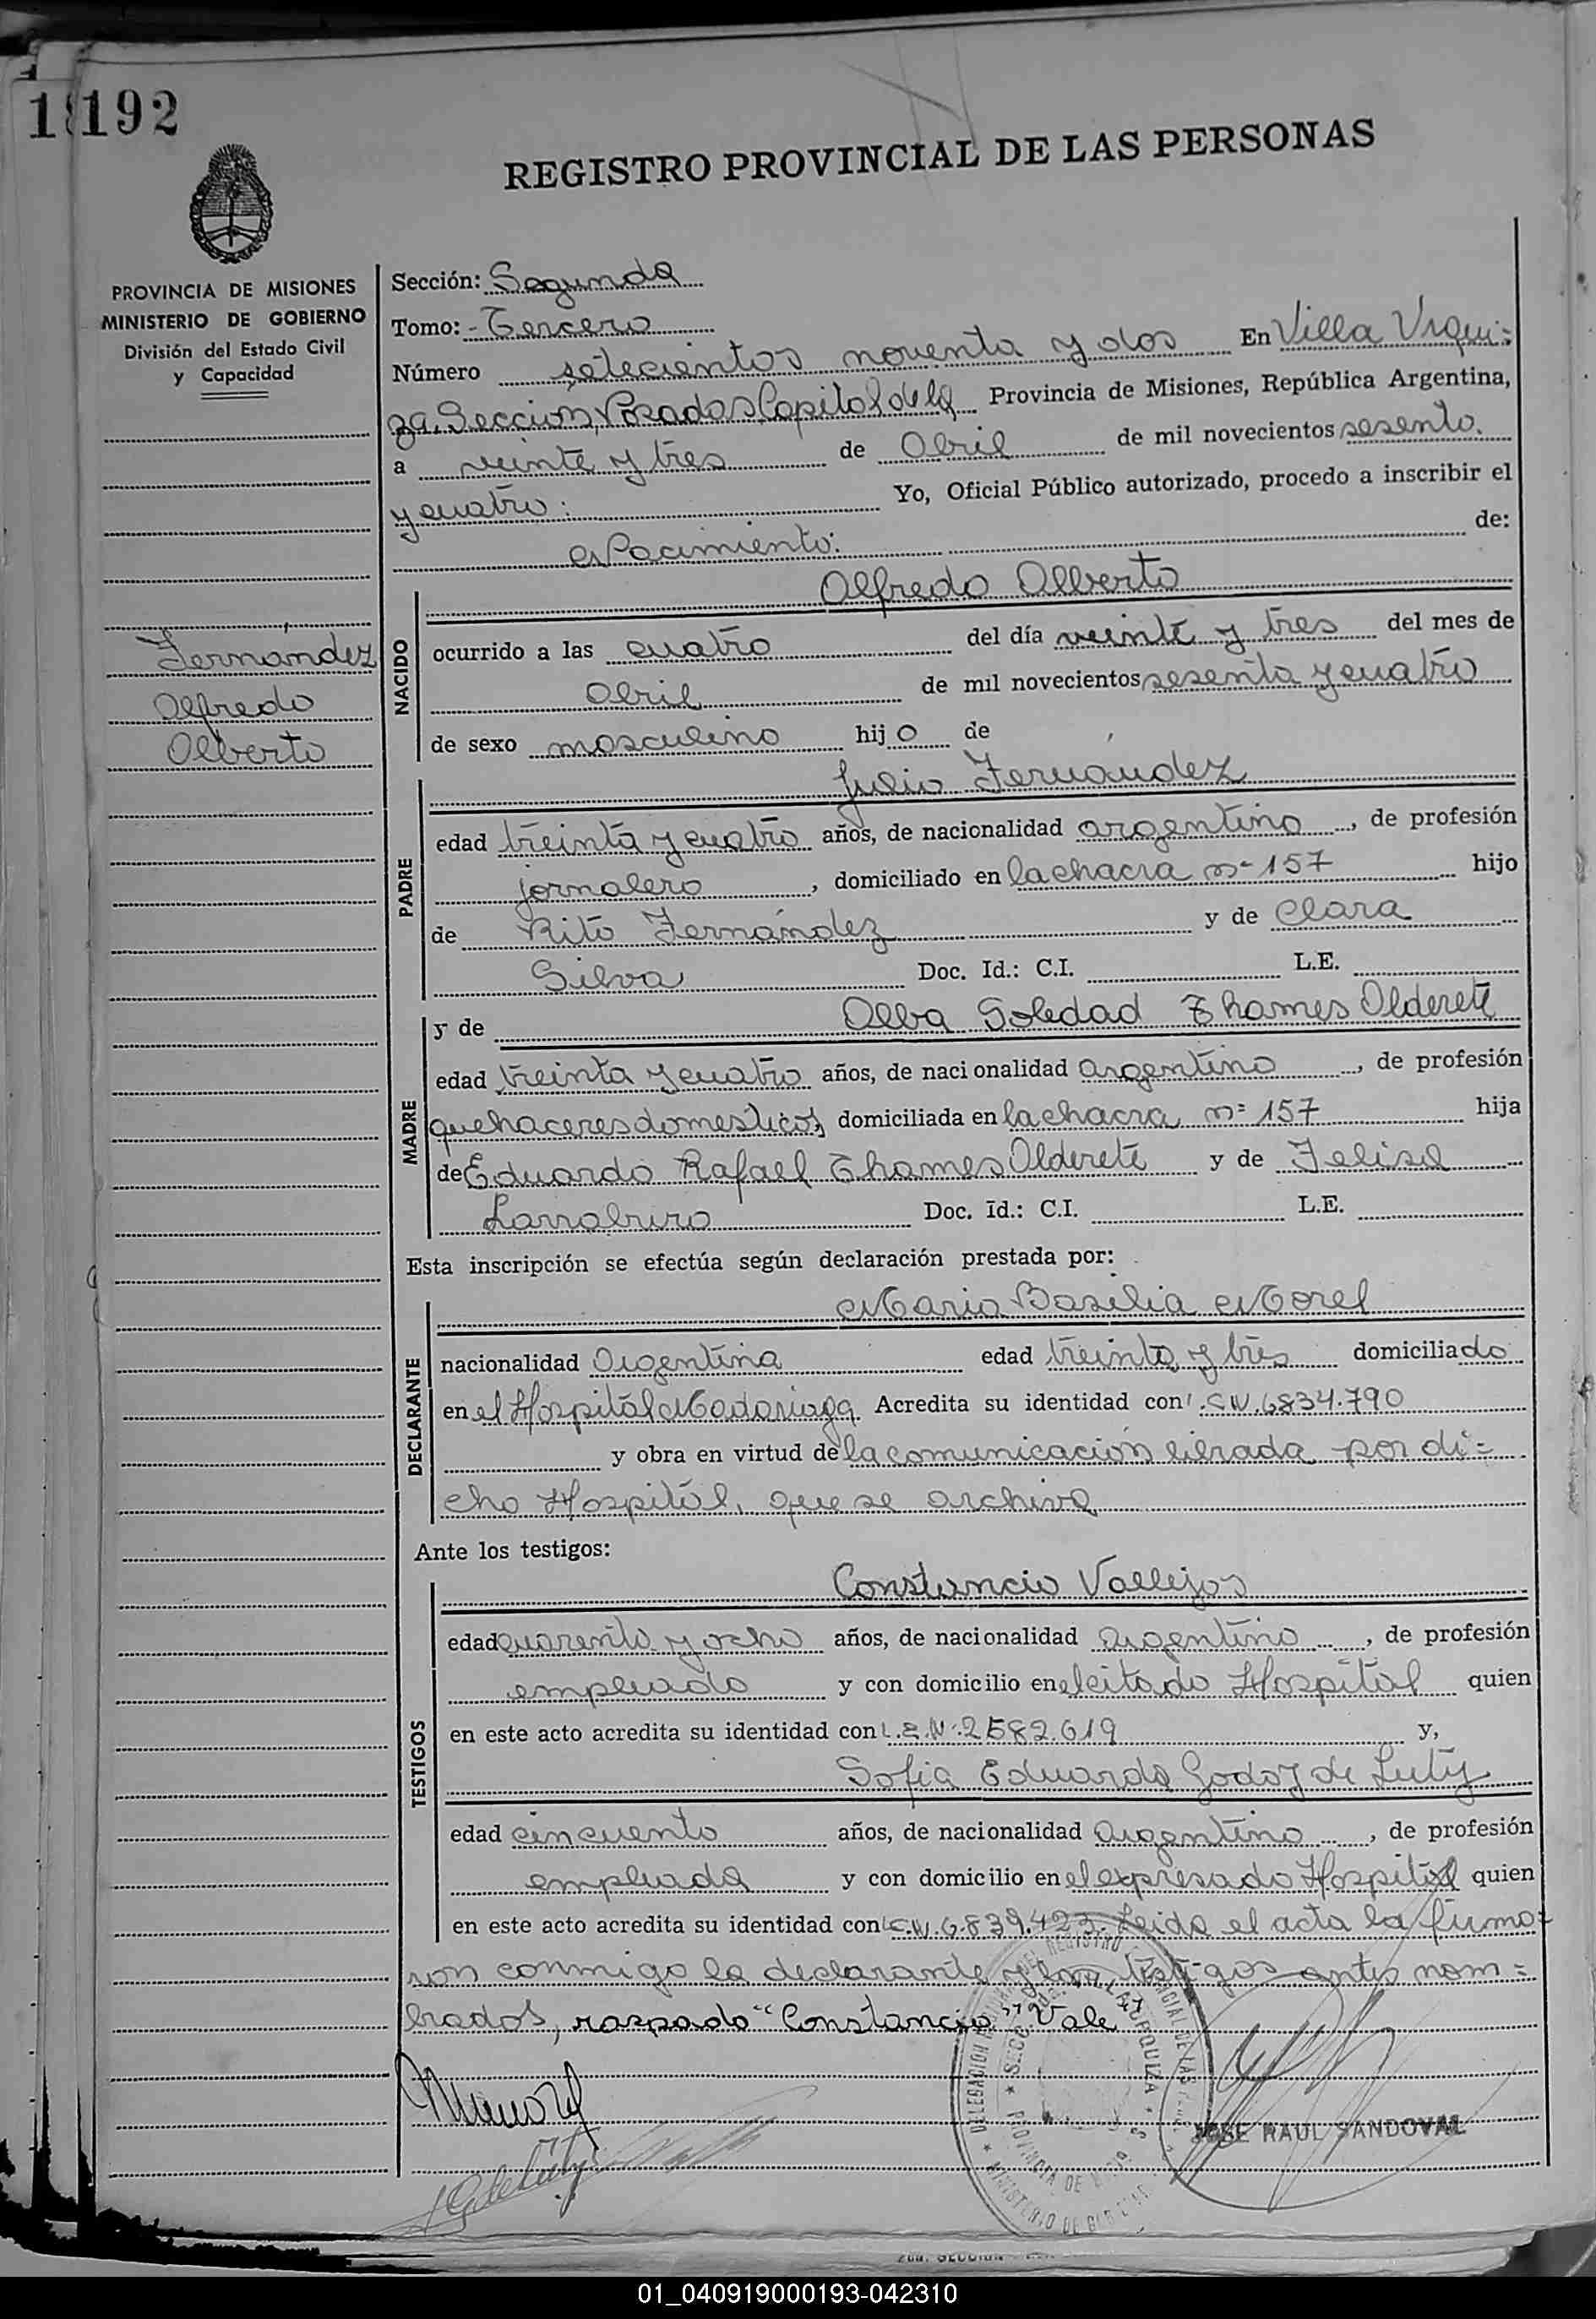 192
REGISTRO PROVINCIAL DE LAS PERSONAS
PROVINCIA DE MISIONES
MINISTERIO DE GOBIERNO
División del Estado Civil
y Capacidad
Fernández
Alfredo
Alberto
Sección: Segunda
Tomo: Tercero
Número setecientos noventa y dos En Villa Urqui=
za, Sección, Posadas, Capital de la Provincia de Misiones, República Argentina,
a veinte y tres de Abril de mil novecientos sesenta
y cuatro: Yo, Oficial Público autorizado, procedo a inscribir el
Nacimiento: de:
NACIDO
Alfredo Alberto
ocurrido a las cuatro del día veinte y tres del mes de
Abril de mil novecientos sesenta y cuatro
de sexo masculino hijo de
PADRE
Julio Fernández
edad treinta y cuatro años, de nacionalidad argentino, de profesión
jornalero, domiciliado en la chacra nº 157 hijo
de Rito Fernández y de Clara
Silva Doc. Id.: C.I. L.E.
MADRE
y de Alba Soledad Thames Alderete
edad treinta y cuatro años, de nacionalidad argentina, de profesión
quehaceres domesticos, domiciliada en la chacra nº 157 hija
de Eduardo Rafael Thames Alderete y de Felisa
Doc. Id.: C.I. L.E.
Esta inscripción se efectúa según declaración prestada por:
DECLARANTE
Maria Basilia Morel
nacionalidad Argentina edad treinta y tres domiciliado
en el Hospital Madariaga Acredita su identidad con 6834.790
y obra en virtud de la comunicación librada por di=
cho Hospital, que se archiva
Ante los testigos:
TESTIGOS
Constancio Vallejos
edad cuarenta y ocho años, de nacionalidad argentino, de profesión
empleado y con domicilio en el citado Hospital quien
en este acto acredita su identidad con L.E.Nº 2582.619 y,
Sofia Eduarda Godoy de Luty
edad cincuenta años, de nacionalidad Argentina, de profesión
empleada y con domicilio en el expresado Hospital quien
en este acto acredita su identidad con 6.839.423. Leida el acta la firma=
ron conmigo la declarante y los testigos antes nom=
brados, raspado "Constancio" Vale
JOSE RAUL SANDOVAL
01_040919000193-042310